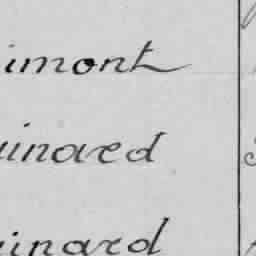 imont
uinard
uinard